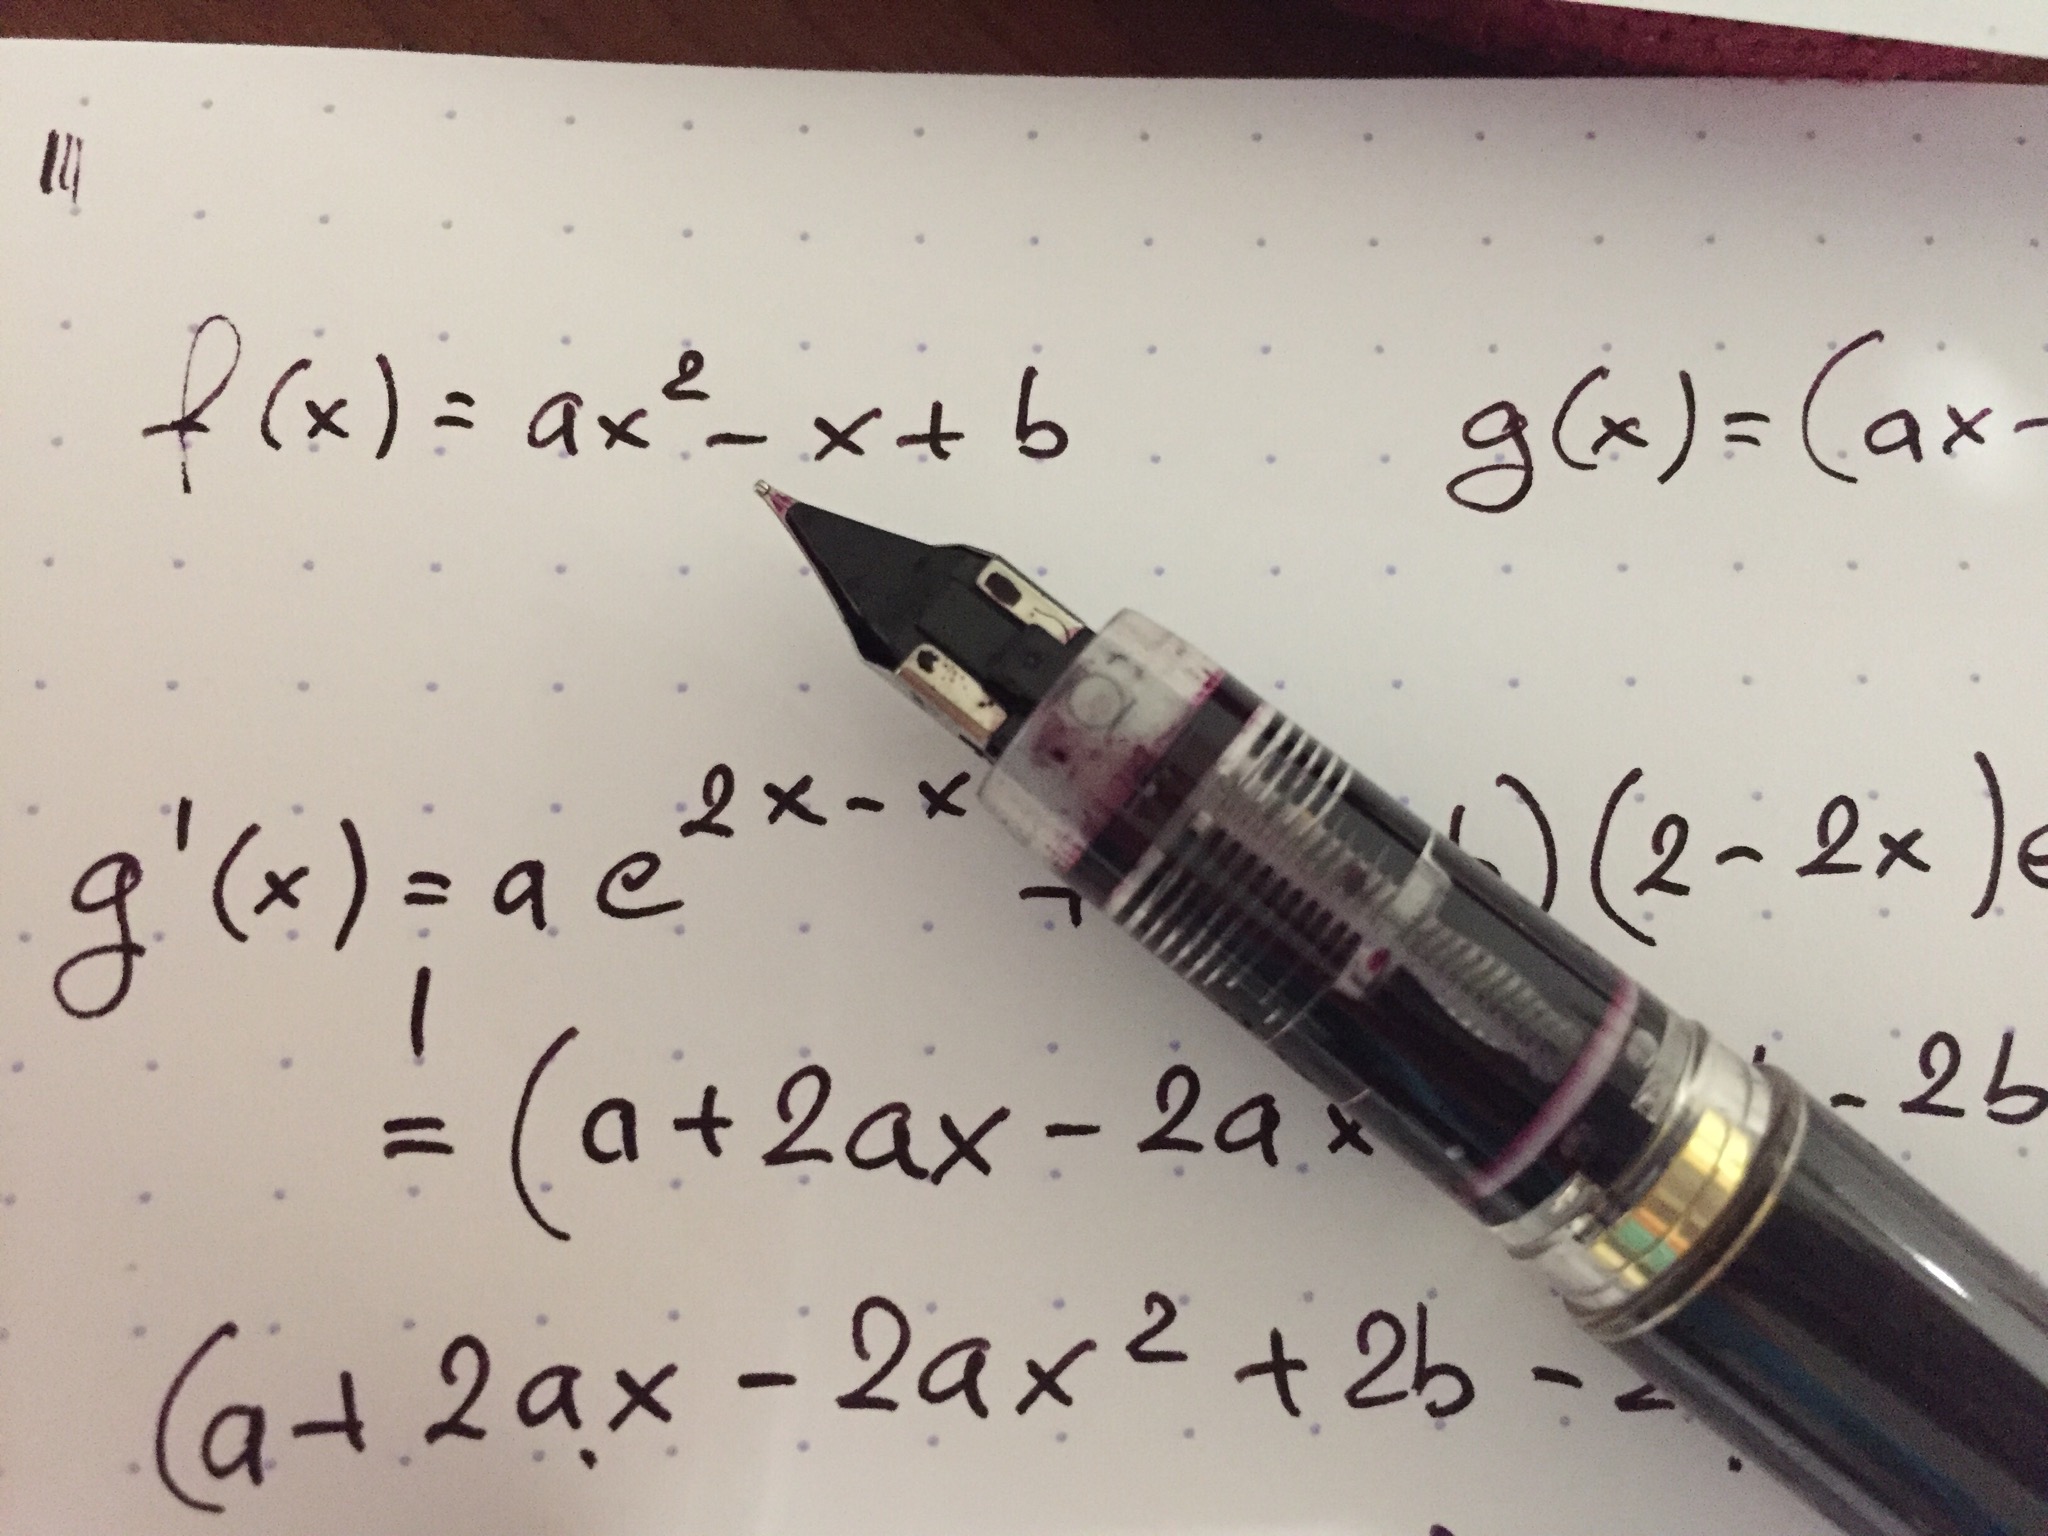 f(x) = ax² - x + b g(x) = (ax -
g'(x) = a e^{2x - x b)(2 - 2x)e
= (a + 2ax - 2ax - 2b
(a + 2ax - 2ax² + 2b -